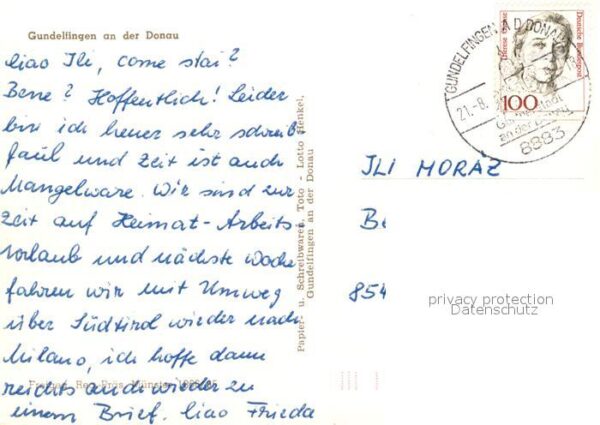 Gundelfingen an der Donau
Ciao Ili, come stai?
Bene? Hoffentlich! Leider
bin ich heuer sehr schreib
faul und Zeit ist auch
Mangelware. Wir sind zur
Zeit auf Heimat-Arbeits-
vorlaub und nächste Woche
fahren wir mit Umweg
über Südtirol wieder nach
Milano, ich hoffe dann
reichts auch wieder zu
einem Brief. Ciao Frieda
Papier- u. Schreibwaren, Toto - Lotto Henkel,
Gundelfingen an der Donau
Freigeg. Reg. Präs. Münster
Deutsche Bundespost
100
GUNDELFINGEN A D DONAU
21.-8.
an der
8883
ILI MORAZ
Be
854
privacy protection
Datenschutz